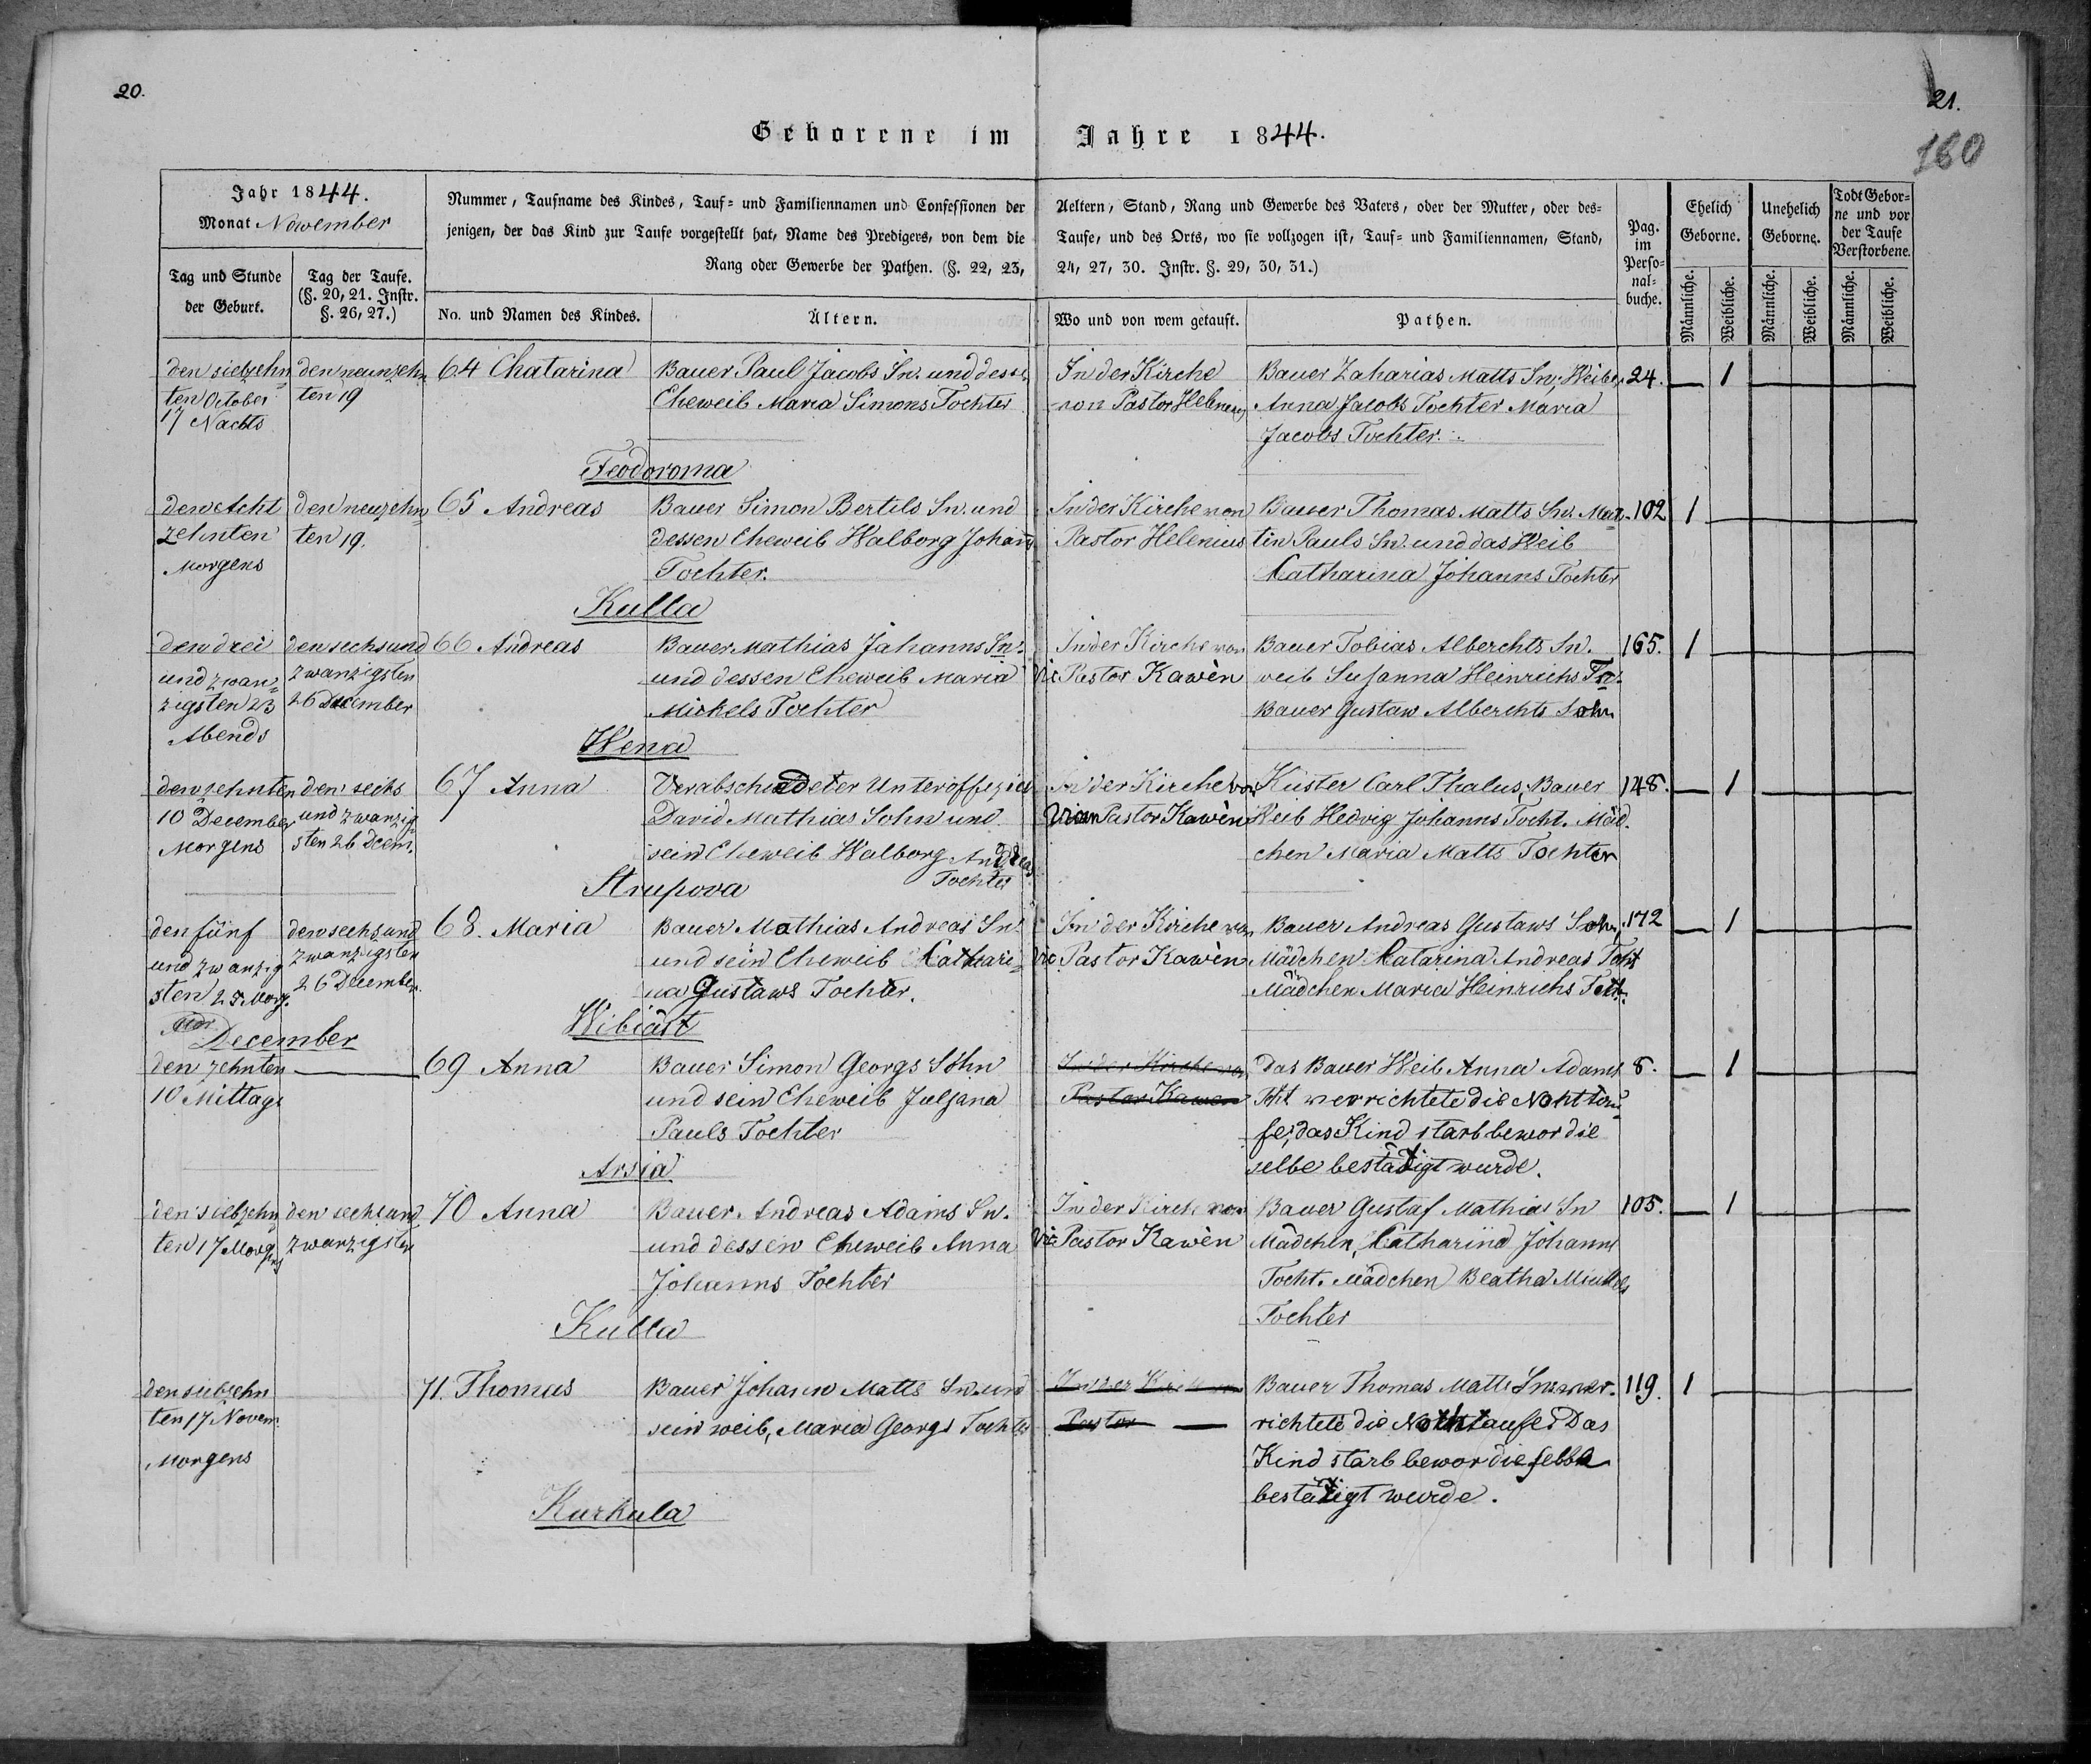 20.
21.
160
Geborene im Jahre 1844.
Jahr 1844.
Monat November
Nummer, Taufname des Kindes, Tauf- und Familiennamen und Confessionen der Aeltern, Stand, Rang und Gewerbe des Vaters, oder der Mutter, oder des-
jenigen, der das Kind zur Taufe vorgestellt hat, Name des Predigers, von dem die Taufe, und des Orts, wo sie vollzogen ist, Tauf- und Familiennamen, Stand,
Rang oder Gewerbe der Pathen. (§. 22, 23, 24, 27, 30. Instr. §. 29, 30, 31.)
Tag und Stunde
der Geburt.
Tag der Taufe.
(§. 20, 21. Instr.
§. 26, 27.)
No. und Namen des Kindes.
Ältern.
Wo und von wem getauft.
Pathen.
Pag.
im
Perso-
nal-
buche.
Ehelich
Geborne.
Unehelich
Geborne.
Todt Gebor-
ne und vor
der Taufe
Verstorbene.
Männliche.
Weibliche.
Männliche.
Weibliche.
Männliche.
Weibliche.
den siebzehn
ten October
17 Nachts
den neunzehn
ten 19
64 Chatarina
Bauer Paul Jacobs Sn. und dess.
Eheweib Maria Simons Tochter
In der Kirche
von Pastor Helenius
Bauer Zaharias Matts Sn; Weiber
Anna Jacobs Tochter Maria
Jacobs Tochter.
24.
1
Feodoroma
den Acht
zehnten
Morgens
den neuzehn
ten 19.
65 Andreas
Bauer Simon Bertils Sn. und
dessen Eheweib Walborg Johans
Tochter.
In der Kirche von
Pastor Helenius
Bauer Thomas Matts Sn. Mar-
tin Pauls Sn. und das Weib
Catharina Johanns Tochter
102
1
Kulla
den drei
und zwan-
zigsten 23
Abends
den sechsund
zwanzigsten
26 December
66 Andreas
Bauer Mathias Jahanns Sn.
und dessen Eheweib Maria
Mickels Tochter
In der Kirche von
Vic Pastor Kawèn
Bauer Tobias Alberchts Sn.
weib Susanna Heinrichs To.
Bauer Gustaw Alberchts Sohn
165.
1
Wena
den zehnten
10 December
Morgens
den sechs
und zwanzig
sten 26 Decem.
67 Anna
Verabschiedeter Unteroffizier
David Mathias Sohn und
sein Eheweib Walborg Andreas
Tochter
In der Kirche von
Pastor Kawèn
Küster Carl Thalus, Bauer
Weib Hedvig Johanns Tocht. Mäd.
chen Maria Matts Tochter
148.
1
Strupova
den fünf
und zwanzig
sten 25 Morg.
den sechsund
zwanzigsten
26 December.
68. Maria
Bauer Mathias Andreas Sn.
und sein Eheweib Cathari-
na Gustaws Tochter.
In der Kirche von
Vic Pastor Kawèn
Bauer Andreas Gustaws Sohn,
Mädchen Catarina Andreas Toht
Mädchen Maria Heinrichs Toth.
172
1
Wibiäst
December
den zehnten
10 Mittags
69 Anna
Bauer Simon Georgs Sohn
und sein Eheweib Juljana
Pauls Tochter
In der Kirche von
Pastor Kawen
das Bauer Weib Anna Adams
Tht verrichtete die Nohttau
fe; das Kind starb bewor die
selbe bestätigt wurde.
8.
1
Arsia
den siebzehn
ten 17 Morgens
den sechsund
zwanzigsten
70 Anna
Bauer Andreas Adams Sn.
und dessen Eheweib Anna
Johanns Tochter
In der Kirche von
Vic Pastor Kawèn
Bauer Gustaf Mathias Sn
Mädchen, Catharina Johanns
Tocht. Mädchen Beatha Mickels
Tochter
105.
1
Kulla
den siebzehn
ten 17 Novem.
Morgens
71. Thomas
Bauer Johann Matts Sn. und
sein weib, Maria Georgs Tochter
In der Kirche von
Pastor
Bauer Thomas Matts Sn. wer-
richtete die Nothtaufe. Das
Kind starb bewor dieselbe
bestätigt wurde.
119.
1
Kurkula